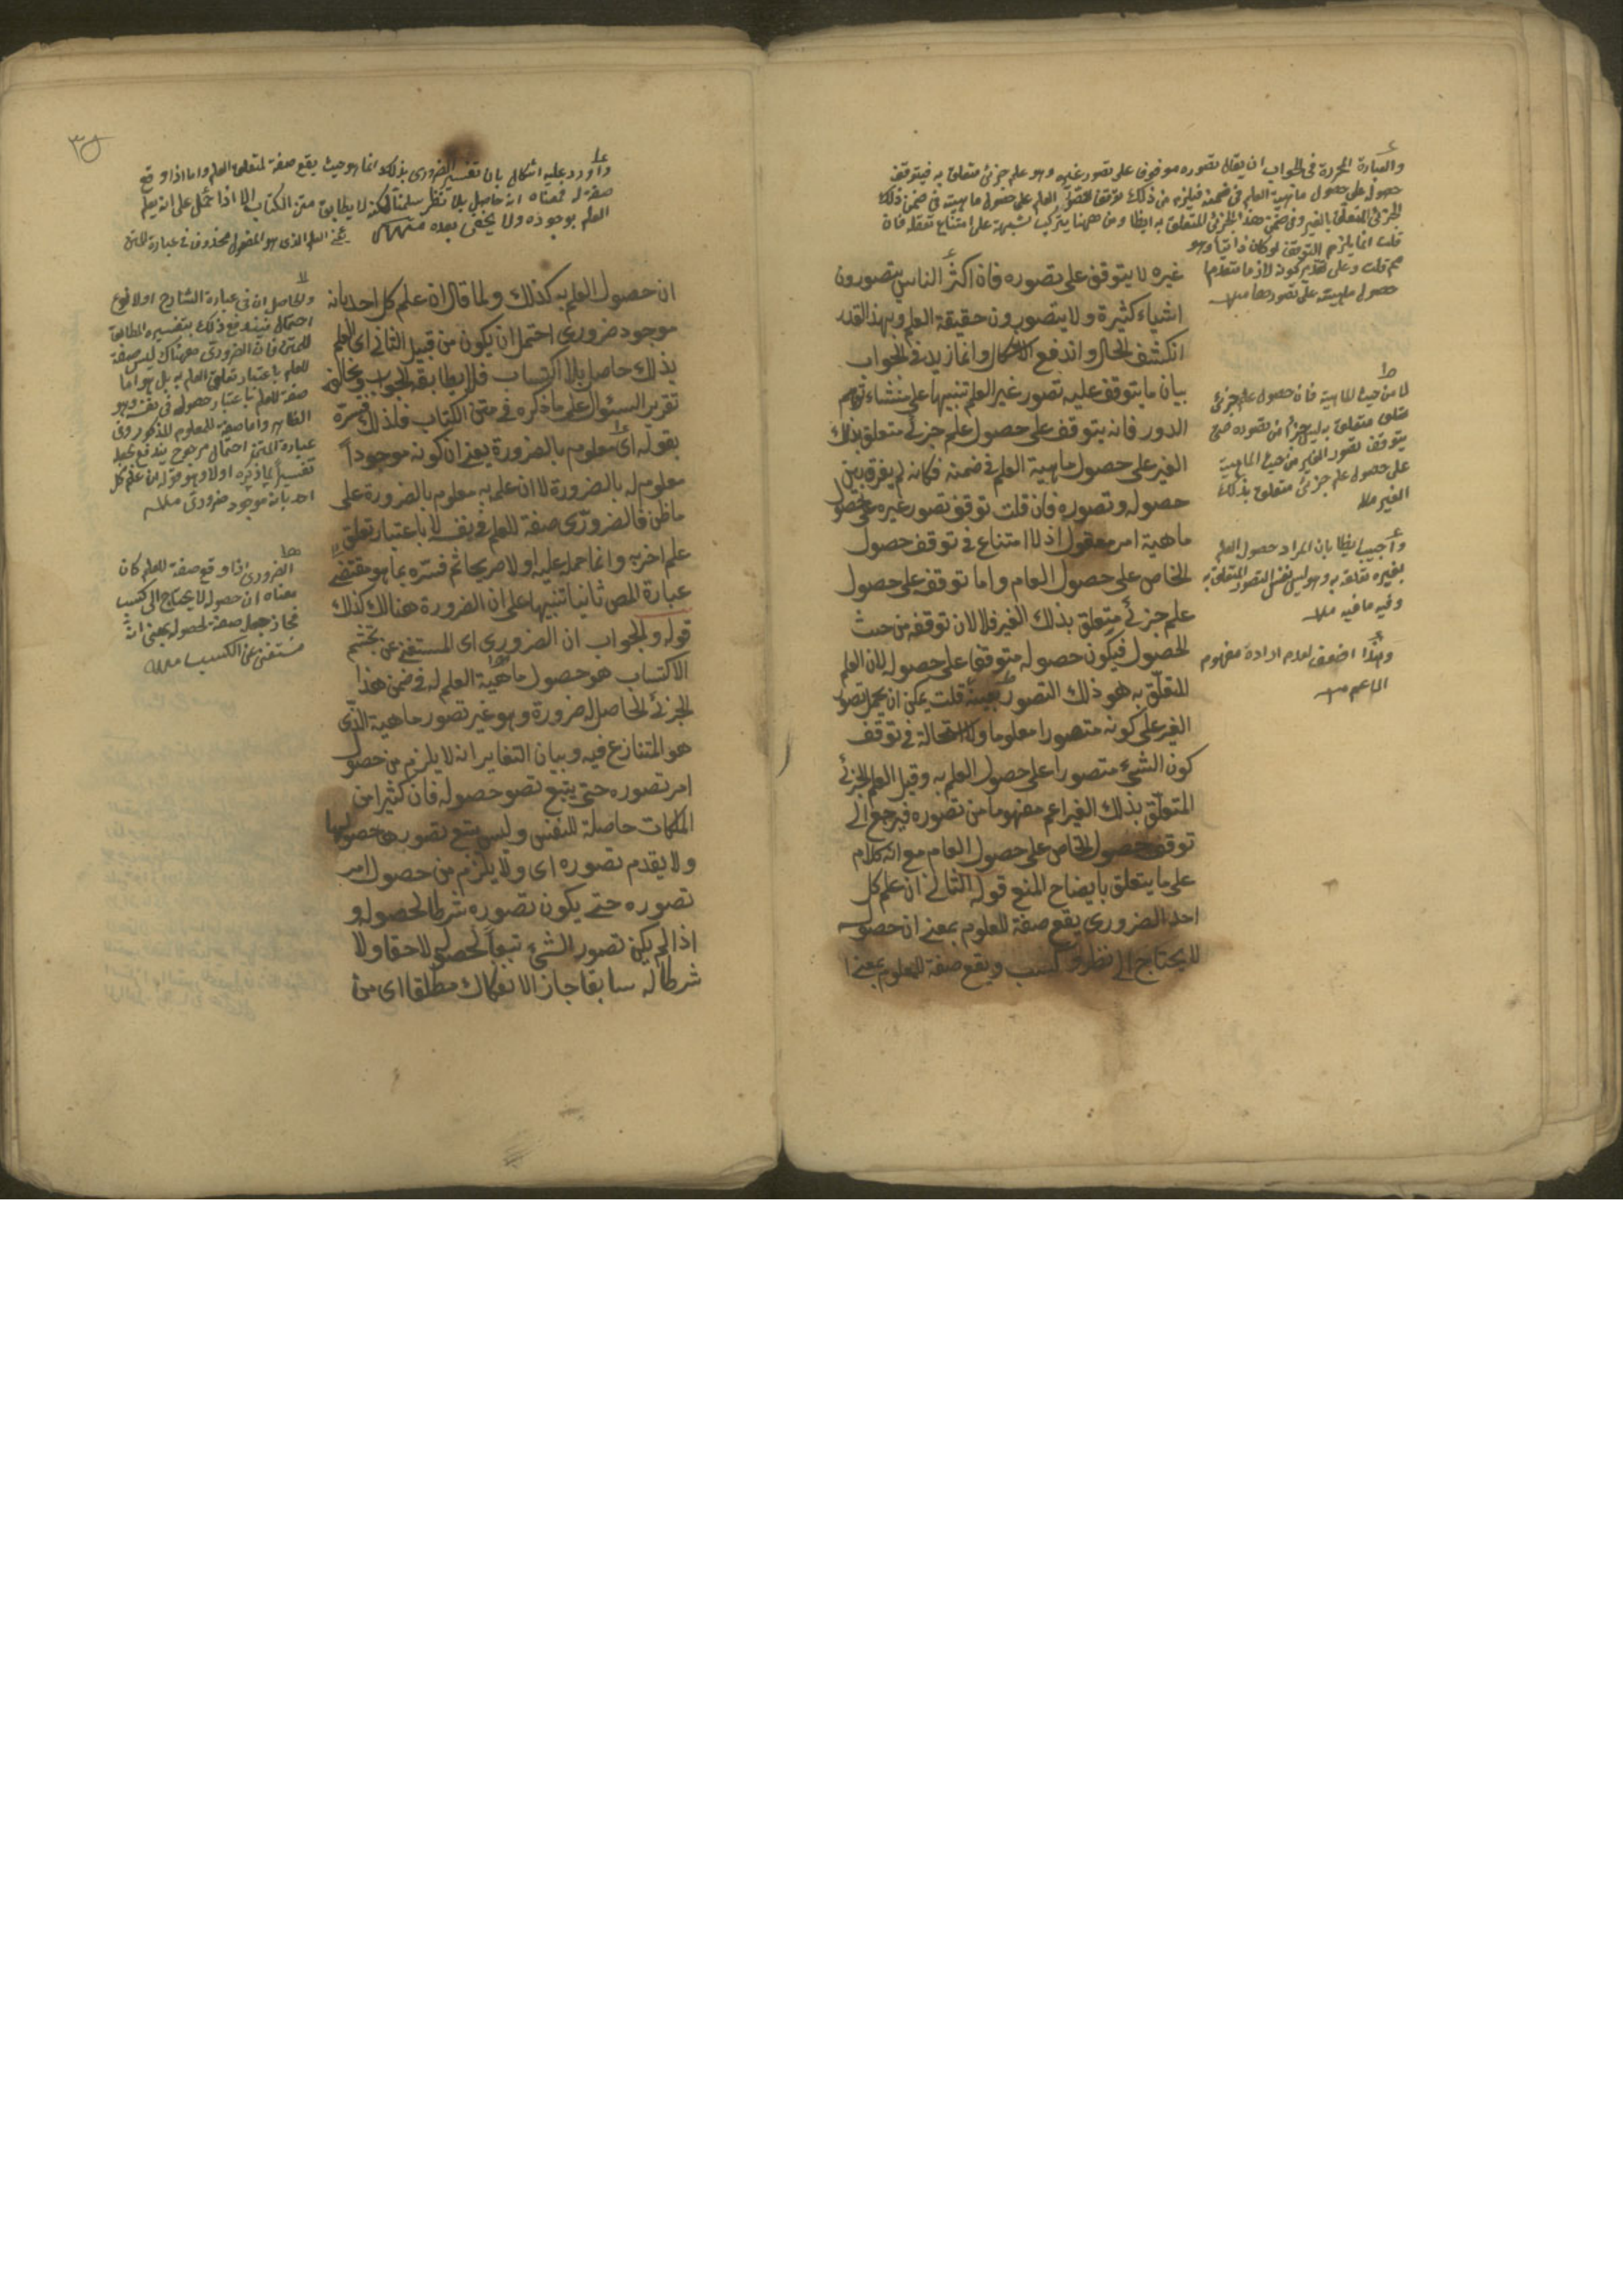 والعبارة المحررة في الجواب ان يقال تصوره موقوف على تصور غيره وهو علم جزئي متعلق به فيتوقف
حصوله على حصول ماهية العلم في ضمنه فيلزم من ذلك توقف العلم على حصول ماهيته في ضمن ذلك
الجزئي المتعلق بالغير وفي ضمن هذا الجزئي المتعلق به ايضا ومن ههنا يتركب شبهة على امتناع تعقله فان
قلت انما يلزم التوقف لو كان ذاتيا وهو
مم قلت وعلى تقدير كونه لازما متقدما
حصول ماهيته على تصورها
غيره لا يتوقف على تصوره فان اكثر الناس يتصورون
اشياء كثيرة ولا يتصورون حقيقة العلم وبهذا القدر
انكشف الحال واندفع الاشكال وانما زيد في الجواب
بيان ما يتوقف عليه تصور غير العلم تنبيها على منشاء توهم
الدور فانه يتوقف على حصول علم جزئي متعلق بذلك
الغير على حصول ماهية العلم في ضمنه فكانه لم يفرق بين
حصوله وتصوره فان قلت توقف تصور غيره على حصول
ماهية امر معقول اذ لا امتناع في توقف حصول
الخاص على حصول العام واما توقفه على حصول
علم جزئي متعلق بذلك الغير فلا لان توقفه من حيث
الحصول فيكون حصوله متوقفا على حصوله لان العلم
المتعلق به هو ذلك التصور بعينه قلت يمكن ان يحمل تصور
الغير على كونه متصورا معلوما ولا استحالة في توقف
كون الشيء متصورا على حصول العلم به وقيل العلم الجزئي
المتعلق بذلك الغير اعم مفهوما من تصوره فيرجع الى
توقف حصول الخاص على حصول العام مع انه كلام
على ما يتعلق بايضاح المنع قوله الثاني ان علم كل
احد الضروري يقع صفة للعلوم بمعنى ان حصوله
لا يحتاج الى نظر وكسب ويقع صفة للمعلوم بمعنى
لا من حيث الماهية فان حصول علم جزئي
متعلق به ليس جزأ من تصوره حتى
يتوقف تصور الغير من حيث الماهية
على حصول علم جزئي متعلق بذلك
الغير
واجيب ايضا بان المراد حصول العلم
بغيره تعلقه به وهو ليس نفس التصور المتعلق به
وفيه ما فيه
وهذا اضعف لعدم ارادة مفهوم
الاعم
واورد عليه اشكال بان تفسير الضروري بذلك انما هو حيث يقع صفة لمتعلق العلم واما اذا وقع
صفة له فمعناه انه حاصل بلا نظر سلمنا لكنه لا يطابق متن الكتاب الا اذا حمل على انه يعلم
العلم بوجوده ولا يخفى بعده
ان حصول العلم به كذلك ولما قال ان علم كل احد بانه
موجود ضروري احتمل ان يكون من قبيل الثاني اي العلم
بذلك حاصل بلا اكتساب فلا يطابقه الجواب ويخالف
تقرير السؤال على ما ذكره في متن الكتاب فلذلك فسره
بقوله اي معلوم بالضرورة يعني ان كونه موجودا
معلوم له بالضرورة لا ان علمه به معلوم بالضرورة على
ما ظن فالضروري صفة للعلم في نفسه لا باعتبار تعلق
علم اخر به وانما حمله عليه اولا صريحا ثم فسره بما هو مقتضى
عبارة المص ثانيا تنبيها على ان الضرورة هنالك كذلك
قوله والجواب ان الضروري اي المستغني عن تجشم
الاكتساب هو حصول ماهية العلم له في ضمن هذا
الجزئي الحاصل له ضرورة وهو غير تصور ماهية الذي
هو المتنازع فيه وبيان التغاير انه لا يلزم من حصول
امر تصوره حتى يتبع تصوره حصوله فان كثيرا من
الملكات حاصلة للنفس وليس يتبع تصورها حصولها
ولا يقدم تصوره اي ولا يلزم من حصول امر
تصوره حتى يكون تصوره شرطا لحصوله و
اذا لم يكن تصور الشيء تبعا لحصوله لاحقا ولا
شرطا له سابقا جاز الانفكاك مطلقا اي من
والحاصل ان في عبارة الشارح اولا نوع
احتمال فيندفع ذلك بتفسيره المطابق
للمتن فان الضروري ههناك ليس صفة
للعلم باعتبار تعلق العلم به بل هو اما
صفة للعلم باعتبار حصوله في نفسه وهو
الظاهر واما صفة للمعلوم المذكور وفي
عبارة المتن احتمال مرجوح يندفع بجعله
تفسيرا لما ذكره اولا وهو قوله ان علم كل
احد بانه موجود ضروري
الضروري اذا وقع صفة للعلم كان
معناه ان حصوله لا يحتاج الى كسب
فجاز جعله صفة لحصوله بمعنى انه
مستغني عن الكسب